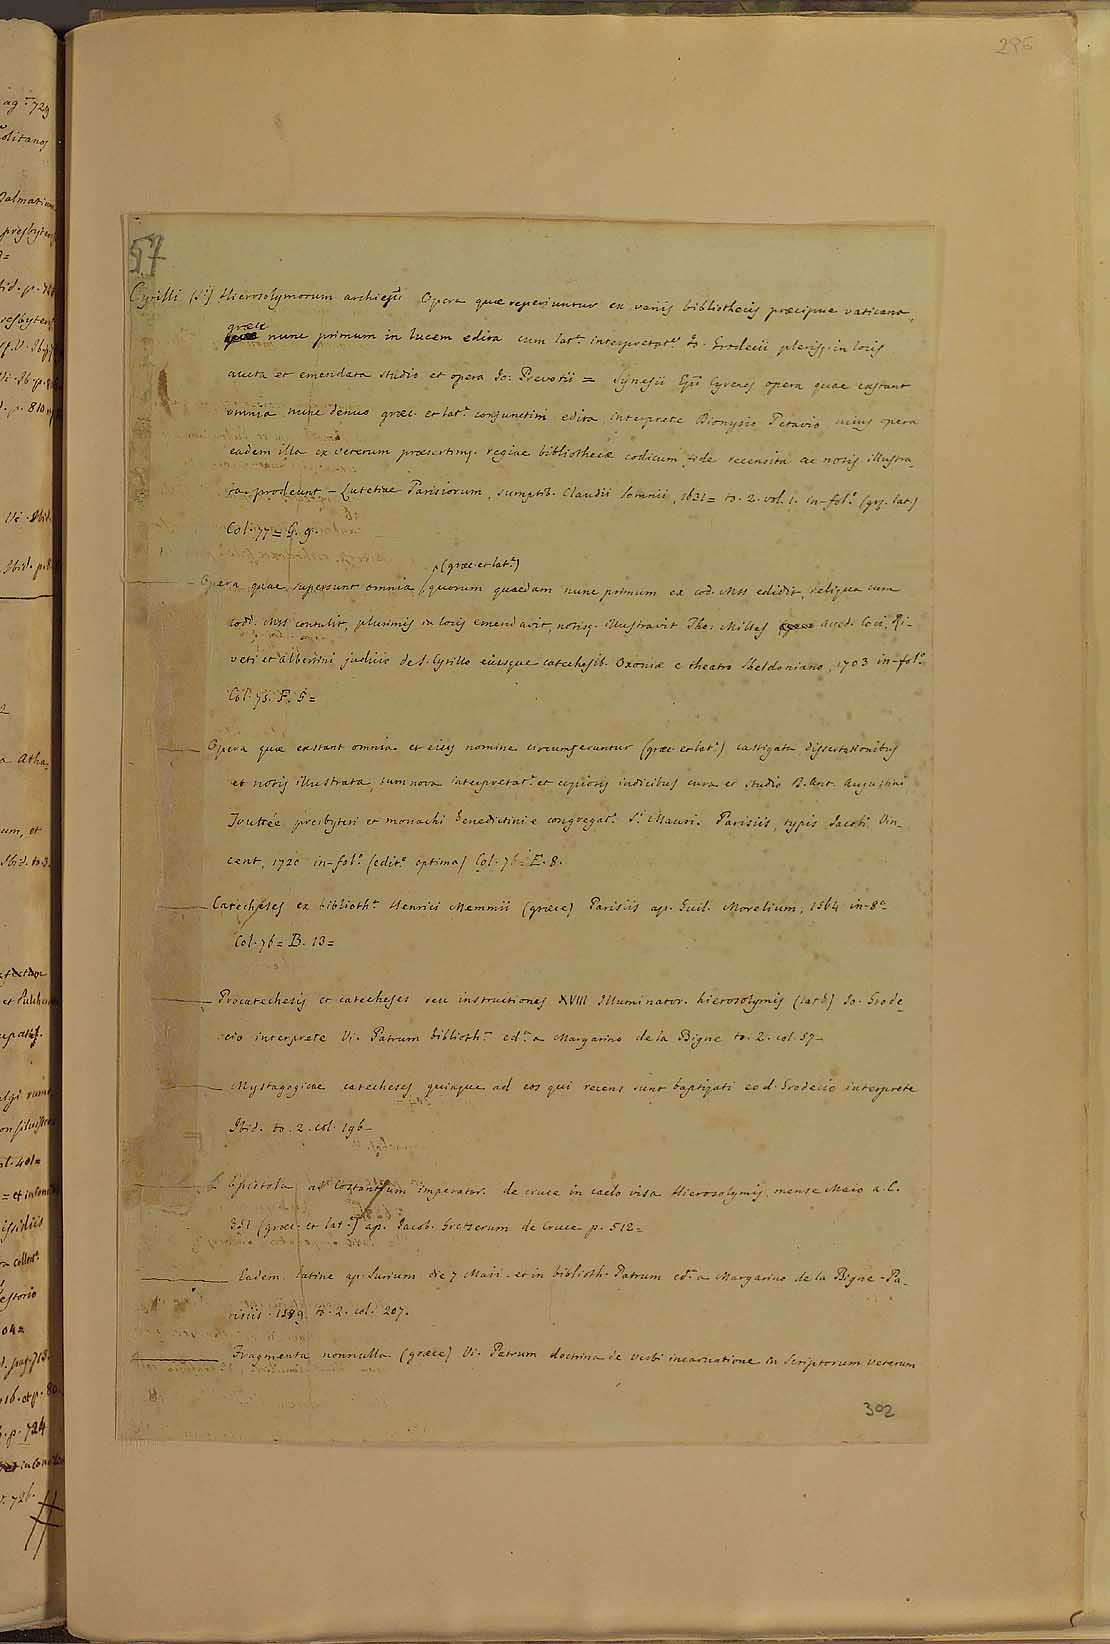 296
57
Cyrilli (S.i) Hierosolymorum archiep̃i Opera quæ reperiuntur ex variis bibliothecis præcipue vaticana,
græce nunc primum in lucem edita cum lat.a interpretat.e Jo. Grodecii plerisq. in locis
aucta et emendata studio et opera Jo. Prevotii = Synesii Ep̃i Cyrenes opera quae exstant
omnia nunc denuo græc. et lat.e conjunctim edita interprete Dionysio Petavio cuius opera
eadem illa ex veterum præsertimq. regiae bibliothecæ codicum fide recensita ac notis illustra-
ta prodeunt - Lutetiae Parisiorum, sumptib. Claudii Sonnii, 1631= to. 2. vol. 1. in-fol.o (gr. lat.)
Col. 77= G. 9.
(græc. et lat.e)
- Opera quae supersunt omnia quorum quaedam nunc primum ex cod. Mss edidit, reliqua cum
cod. Mss contulit, plurimis in locis emendavit, notisq. illustravit Tho: Milles acced. Coci, Ri-
veti et Albertini judicio de S. Cyrillo eiusque catechesib. Oxoniæ e theatro Sheldoniano, 1703 in-fol.o
Col. 75. F. 5=
Opera quæ exstant omnia et eius nomine circumferuntur (græc. et lat.e) castigata dissertationibus
et notis illustrata, cum nova interpretat.e et copiosis indicibus cura et studio D. Ant. Augustini
Touttée presbyteri et monachi Benedictini e congregat.e S.i Mauri. Parisiis, typis Jacobi Vin-
cent, 1720 in-fol.o (edit.o optima) Col. 76= E. 8.
Catecheses ex biblioth.a Henrici Memmii (græce) Parisiis ap. Guil. Morelium, 1564 in-8.o
Col. 76= B. 13=
- Procatechesis et catecheses seu instructiones XVIII Illuminator. hierosolymis (lat.e) Jo. Grode-
cio interprete Vi. Patrum biblioth.a ed.a a Margarino de la Bigne to. 2. col. 57-
Mystagogicae catecheses quinque ad eos qui recens sunt baptizati eod. Grodecio interprete
Ibid. to. 2. col. 196-
Epistola ad Costantium imperator. de cruce in caelo visa Hierosolymis mense Maio a. C.
351 (græc. et lat.e) ap. Jacob. Gretserum de Cruce p. 512=
Eadem latine ap. Surium die 7 Maii. et in biblioth. Patrum ed.a a Margarino de la Bigne Pa-
risiis. 1589 to. 2. col. 207.
Fragmenta nonnulla (græce) Vi. Patrum doctrina de verbi incarnatione in Scriptorum veterum
302